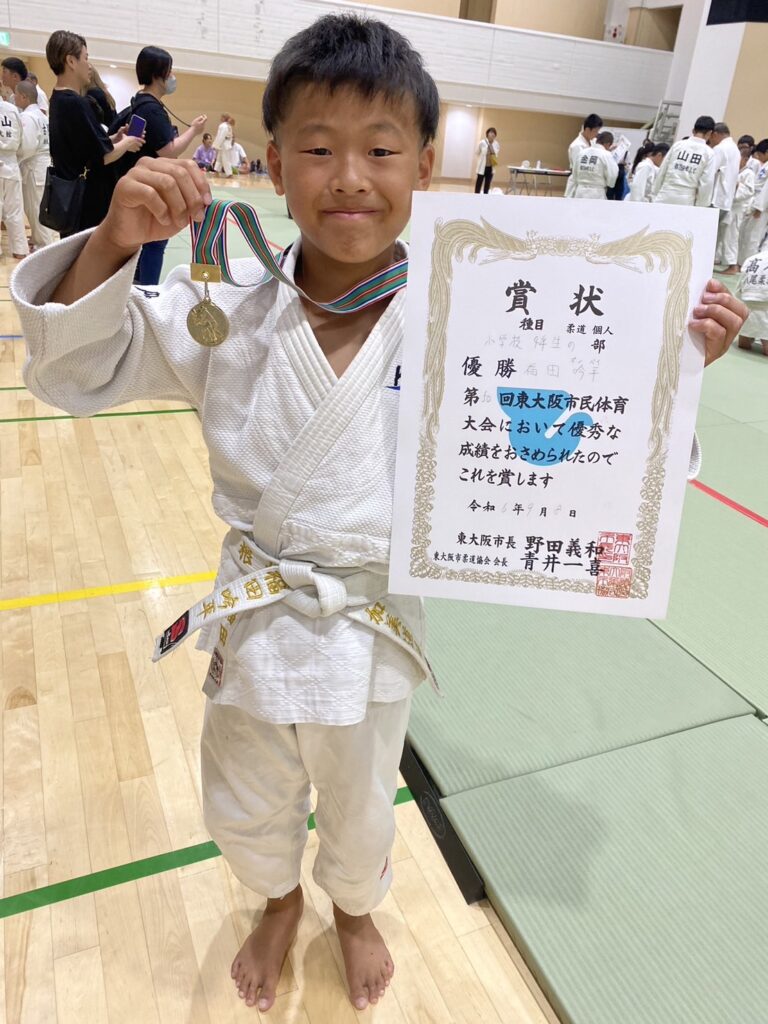 山
金岡
山田
賞状
種目 柔道 個人
小学校 年生の部
優勝 福田
第50回東大阪市民体育
大会において優秀な
成績をおさめられたので
これを賞します
令和6年9月8日
東大阪市長 野田義和
東大阪市柔道協会 会長 青井一喜
福田